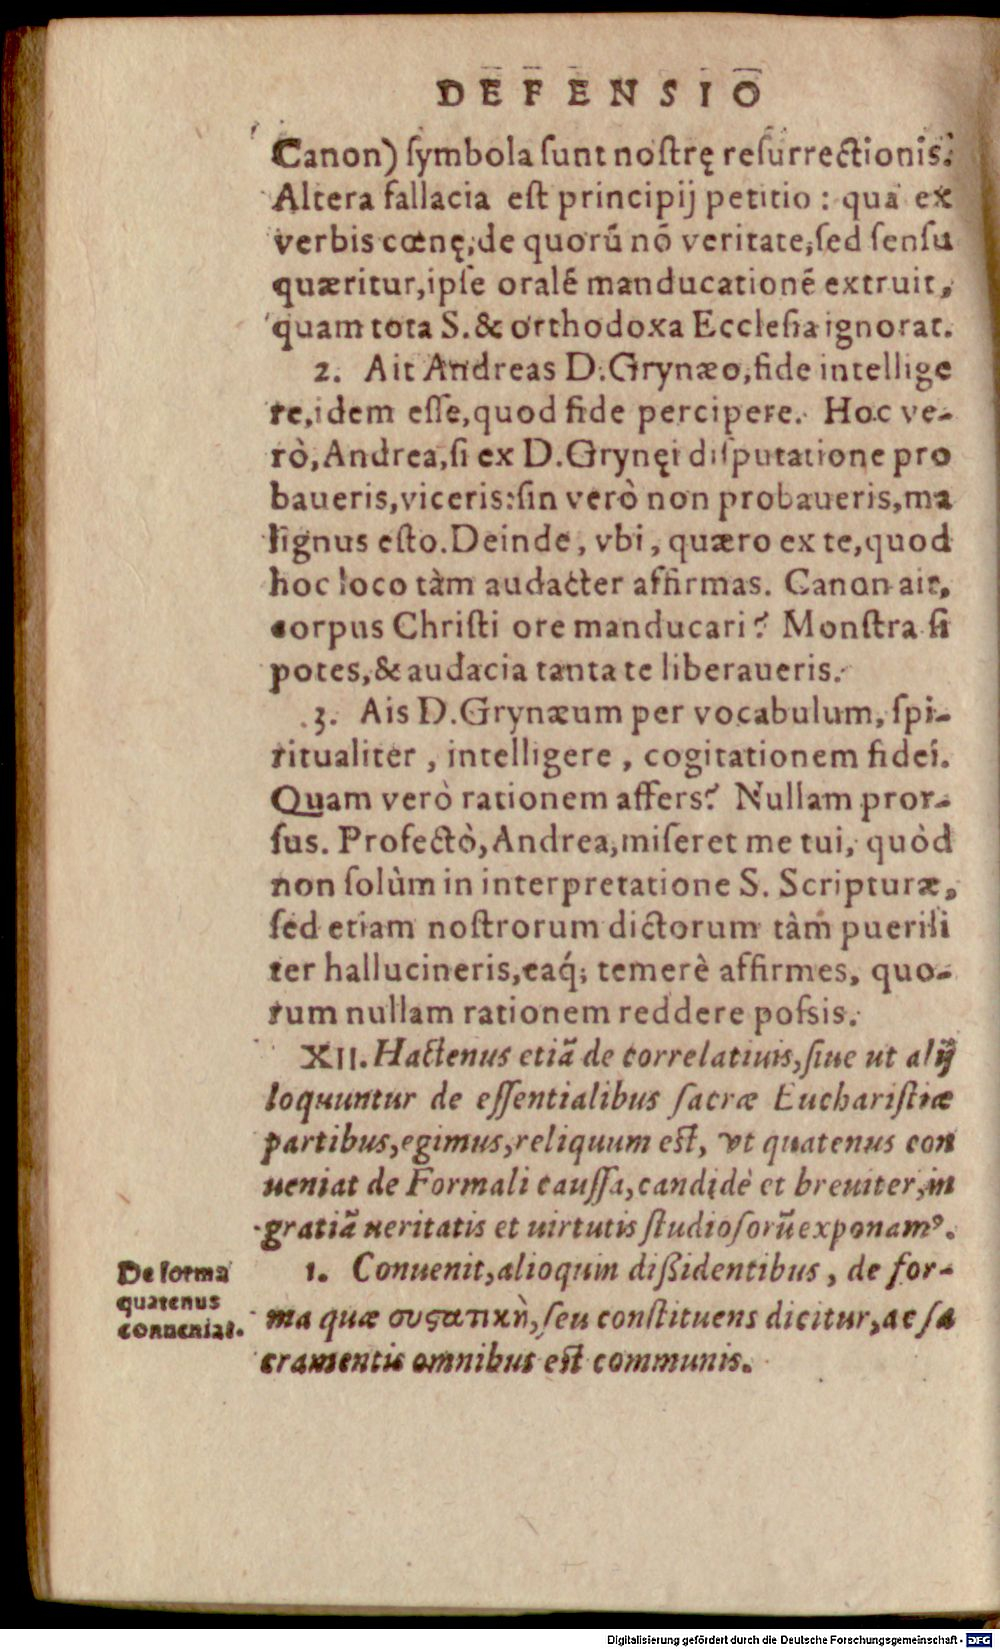 DEFENSIO
Canon) ſymbola ſunt noſtrę reſurrectionis.
Altera fallacia eſt principij petitio : qua ex
verbis cœnę, de quorū nō veritate, ſed ſenſu
quæritur, ipſe oralē manducationē extruit,
quam tota S. & orthodoxa Eccleſia ignorat.
2. Ait Andreas D. Grynæo, fide intellige
re, idem eſſe, quod fide percipere. Hoc ve-
rò, Andrea, ſi ex D. Grynęi diſputatione pro
baueris, viceris: ſin verò non probaueris, ma
lignus eſto. Deinde, vbi, quæro ex te, quod
hoc loco tàm audacter affirmas. Canon ait,
corpus Chriſti ore manducari? Monſtra ſi
potes, & audacia tanta te liberaueris.
3. Ais D. Grynæum per vocabulum, ſpi-
ritualiter, intelligere, cogitationem fidei.
Quam verò rationem affers? Nullam pror-
ſus. Profectò, Andrea, miſeret me tui, quòd
non ſolùm in interpretatione S. Scripturæ,
ſed etiam noſtrorum dictorum tàm puerili
ter hallucineris, eaq́; temerè affirmes, quo-
rum nullam rationem reddere poſsis.
XII. Hactenus etiā de correlatiuis, ſiue ut alij
loquuntur de eſſentialibus ſacræ Euchariſtiæ
partibus, egimus, reliquum eſt, vt quatenus con
ueniat de Formali cauſſa, candidè et breuiter, in
gratiā ueritatis et uirtutis ſtudioſorū exponamꝰ.
De forma
quatenus
conueniat.
1. Conuenit, alioquin diſsidentibus, de for-
ma quæ συϛατικὴ, ſeu conſtituens dicitur, ac ſa
cramentis omnibus eſt communis.
Digitalisierung gefördert durch die Deutsche Forschungsgemeinschaft - DFG